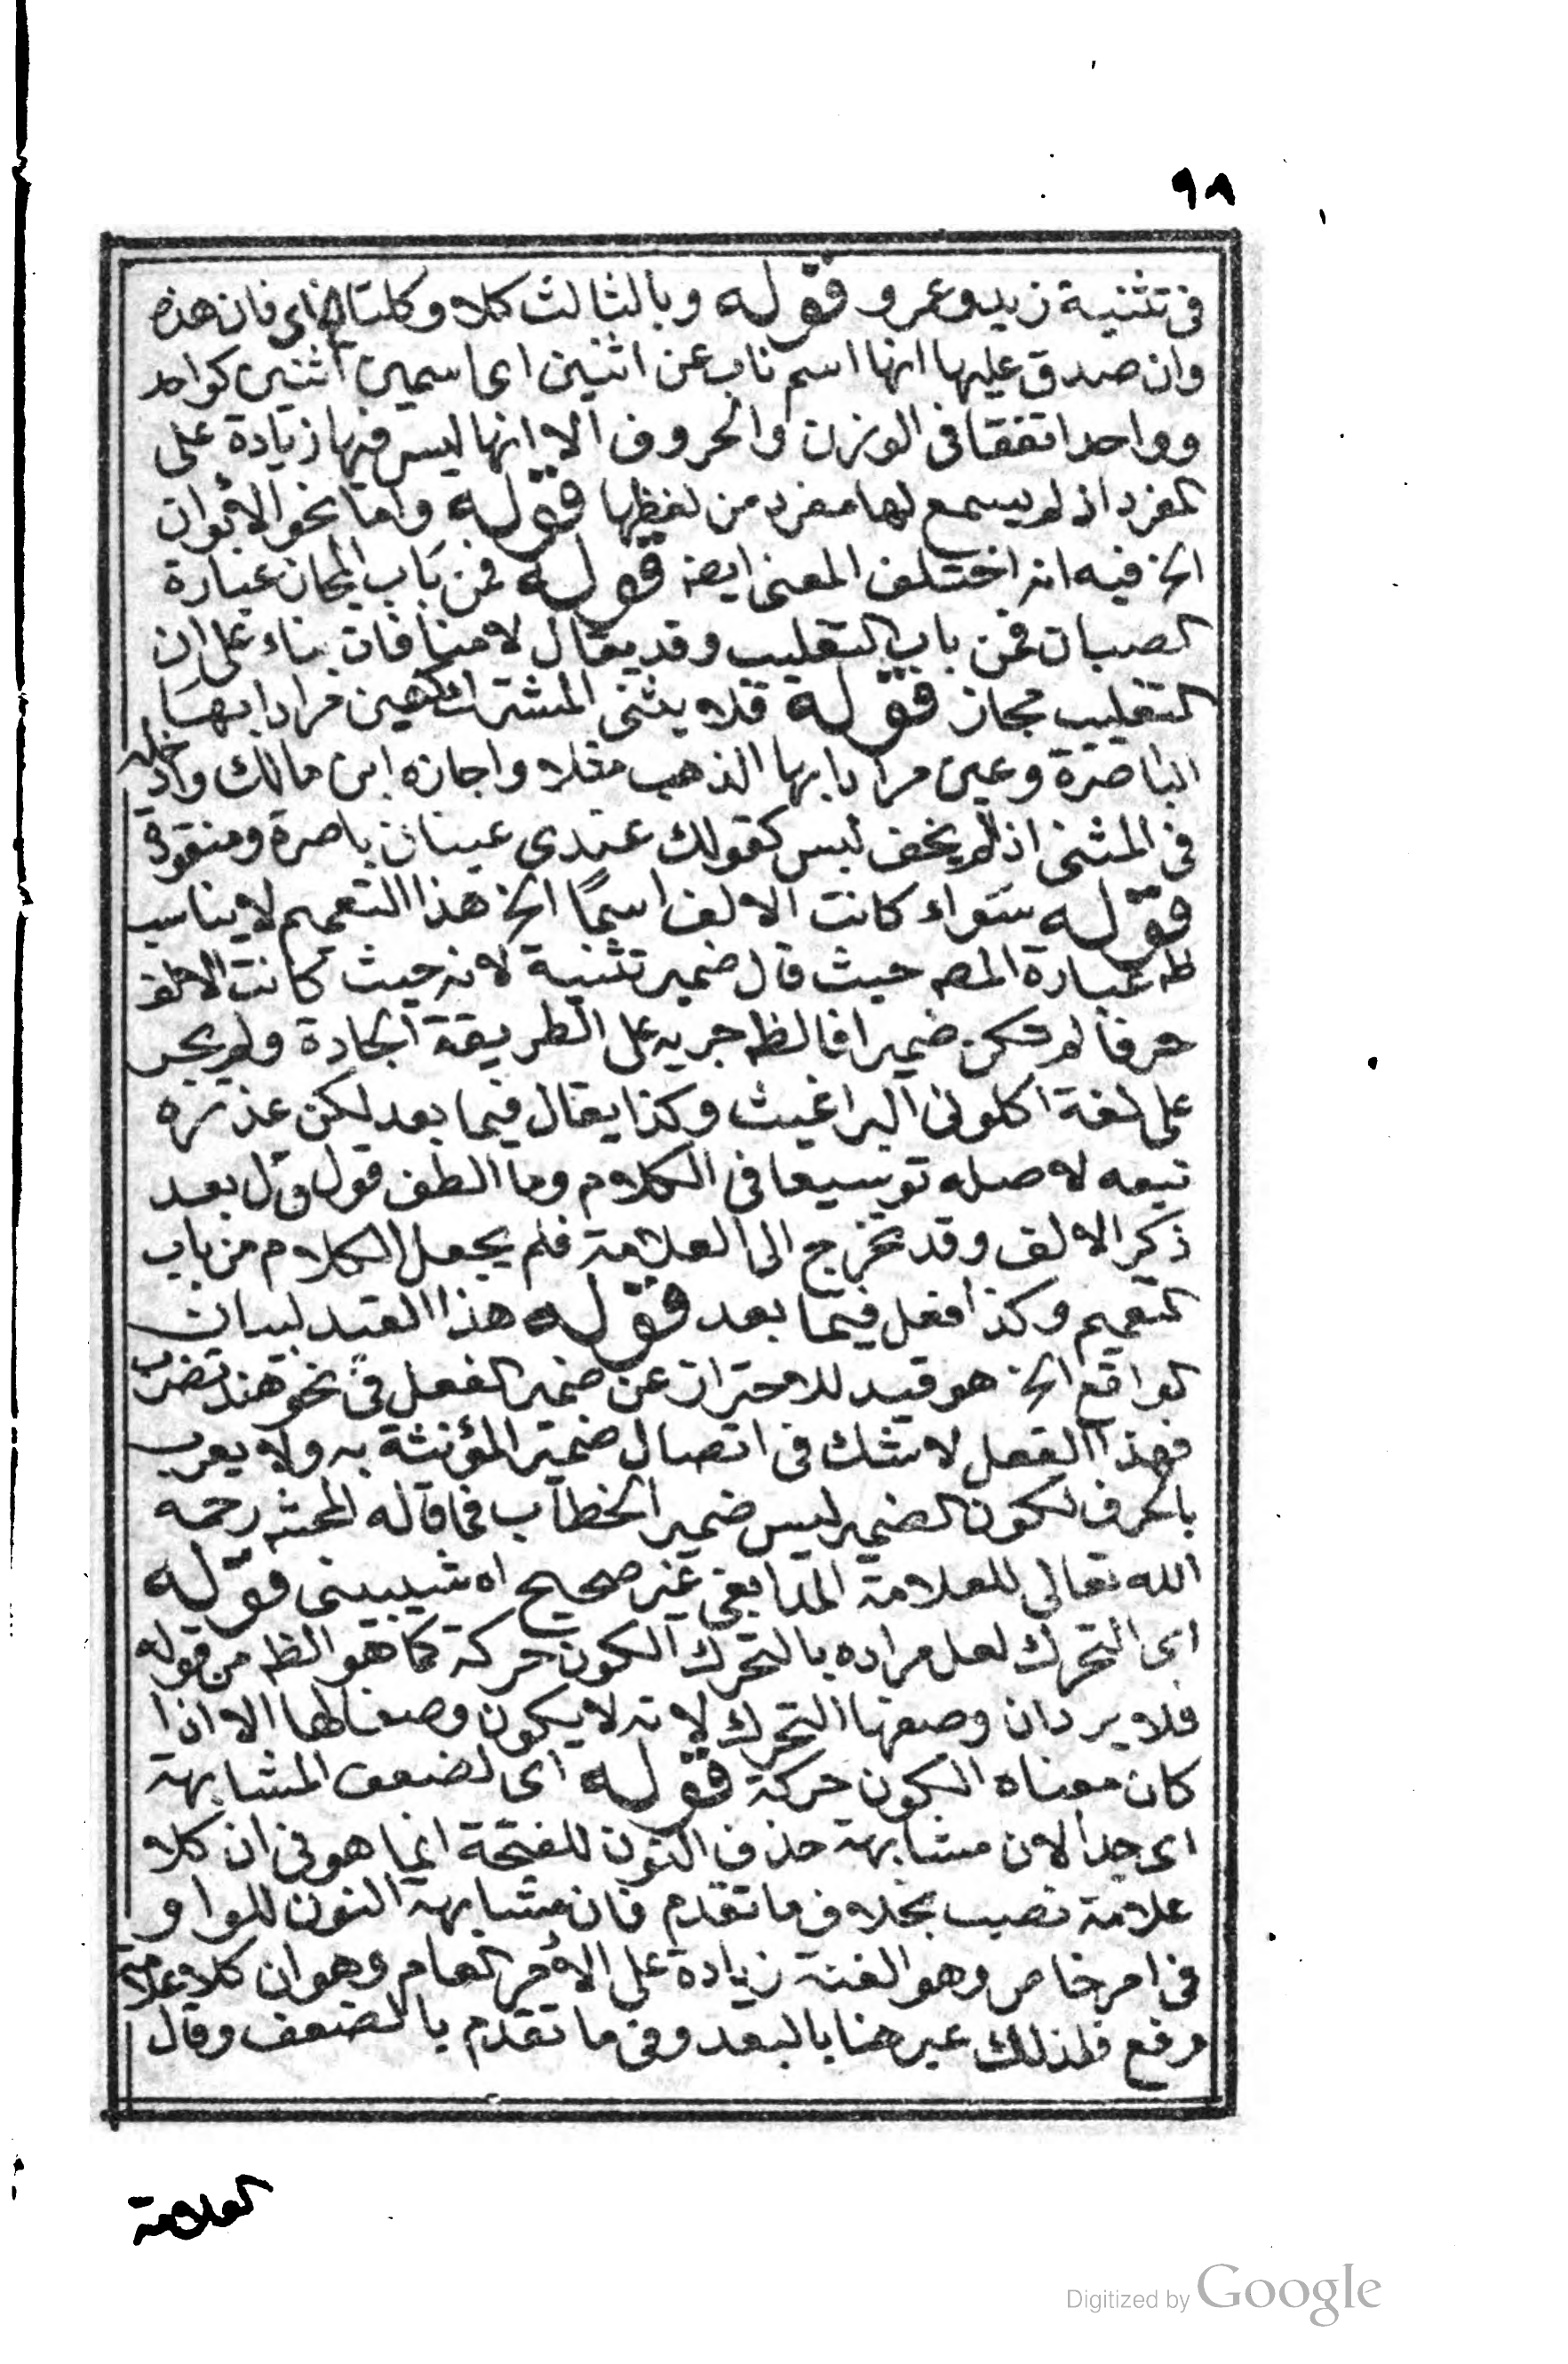 ٩٨
فى تثنية زيد وعمرو قوله وبالثالث كلا وكلتا الخ اى فان هذه
وان صدق عليها انها اسم ناب عن اثنين اى اسمين اثنين كواحد
وواحد اتفقا فى الوزن والحروف الا انها ليس فيها زيادة على
المفرد اذ لم يسمع لها مفرد من لفظها قوله واما نحو الابوان
الخ فيه انه اختلف المعنى ايضه قوله فمن باب المجاز عبارة
الصبان فمن باب التغليب وقد يقال لا منافاة بناء على ان
التغليب مجاز قوله فلا يثنى المشترك كعين مرادا بها
الباصرة وعين مرادا بها الذهب مثلا واجازه ابن مالك وادخله
فى المثنى اذ لم يخف لبس كقولك عندى عينان باصرة ومنقودة
قوله سواء كانت الالف اسمًا الخ هذا التعميم لا يناسب
ظه عبارة المصه حيث قال ضمير تثنية لانه حيث كانت الالف
حرفا لم تكن ضميرا فالظه جريه على الطريقة الجادة ولم يجر
على لغة اكلونى البراغيث وكذا يقال فيما بعد لكن عذره
تبعه لاصله توسيعا فى الكلام وما الطف قول ق ل بعد
ذكر الالف وقد تخرج الى العلامة فلم يجعل الكلام من باب
التعميم وكذا فعل فيما بعد قوله هذا القيد لبيان
الواقع الخ هو قيد للاحتراز عن ضمير الفعل فى نحو هند تضرب
فهذا الفعل لا شك فى اتصال ضمير المؤنثة به ولا يعرب
بالحرف لكون الضمير ليس ضمير الخطاب فما قاله المحشه رحمه
الله تعالى للعلامة المدابغى غير صحيح اه شبيبينى قوله
اى التحرك لعل مراده بالتحرك الكون حركة كما هو الظه من قوله
فلا يرد ان وصفها التحرك لانه لا يكون وصفا لها الا اذا
كان معناه الكون حركة قوله اى لضعف المشابهة
اى جدا لان مشابهة حذف النون للفتحة انما هو فى ان كلا
علامة نصب بخلاف ما تقدم فان مشابهة النون للواو
فى امر خاص وهو الغنة زيادة على الامر العام وهو ان كلا علامة
رفع فلذلك عبر هنا بالبعد وفى ما تقدم بالضعف وقال
العلامة
Digitized by Google